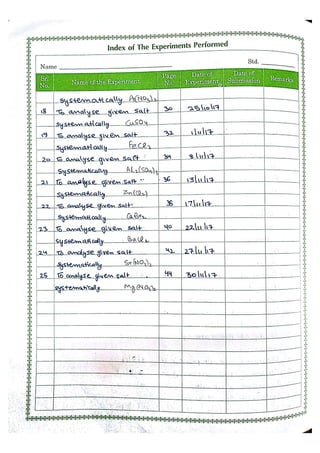 Index of The Experiments Performed
Name Std.
Sr. No. Name of the Experiment Page No. Date of Experiment Date of Submission Remarks
systematically
18 To analyse given salt 30 25/10/17
systematically CuSO4
19 To analyse given salt 32 1/11/17
systematically FeCl3
20 To analyse given salt 34 8/11/17
systematically Al2(SO4)3
21 To analyse given salt 36 13/11/17
systematically
22 To analyse given salt 38 17/11/17
systematically
23 To analyse given salt 40 22/11/17
systematically BaCl2
24 To analyse given salt 42 27/11/17
systematically Sr(NO3)2
25 To analyse given salt 44 30/11/17
systematically Mg(NO3)2